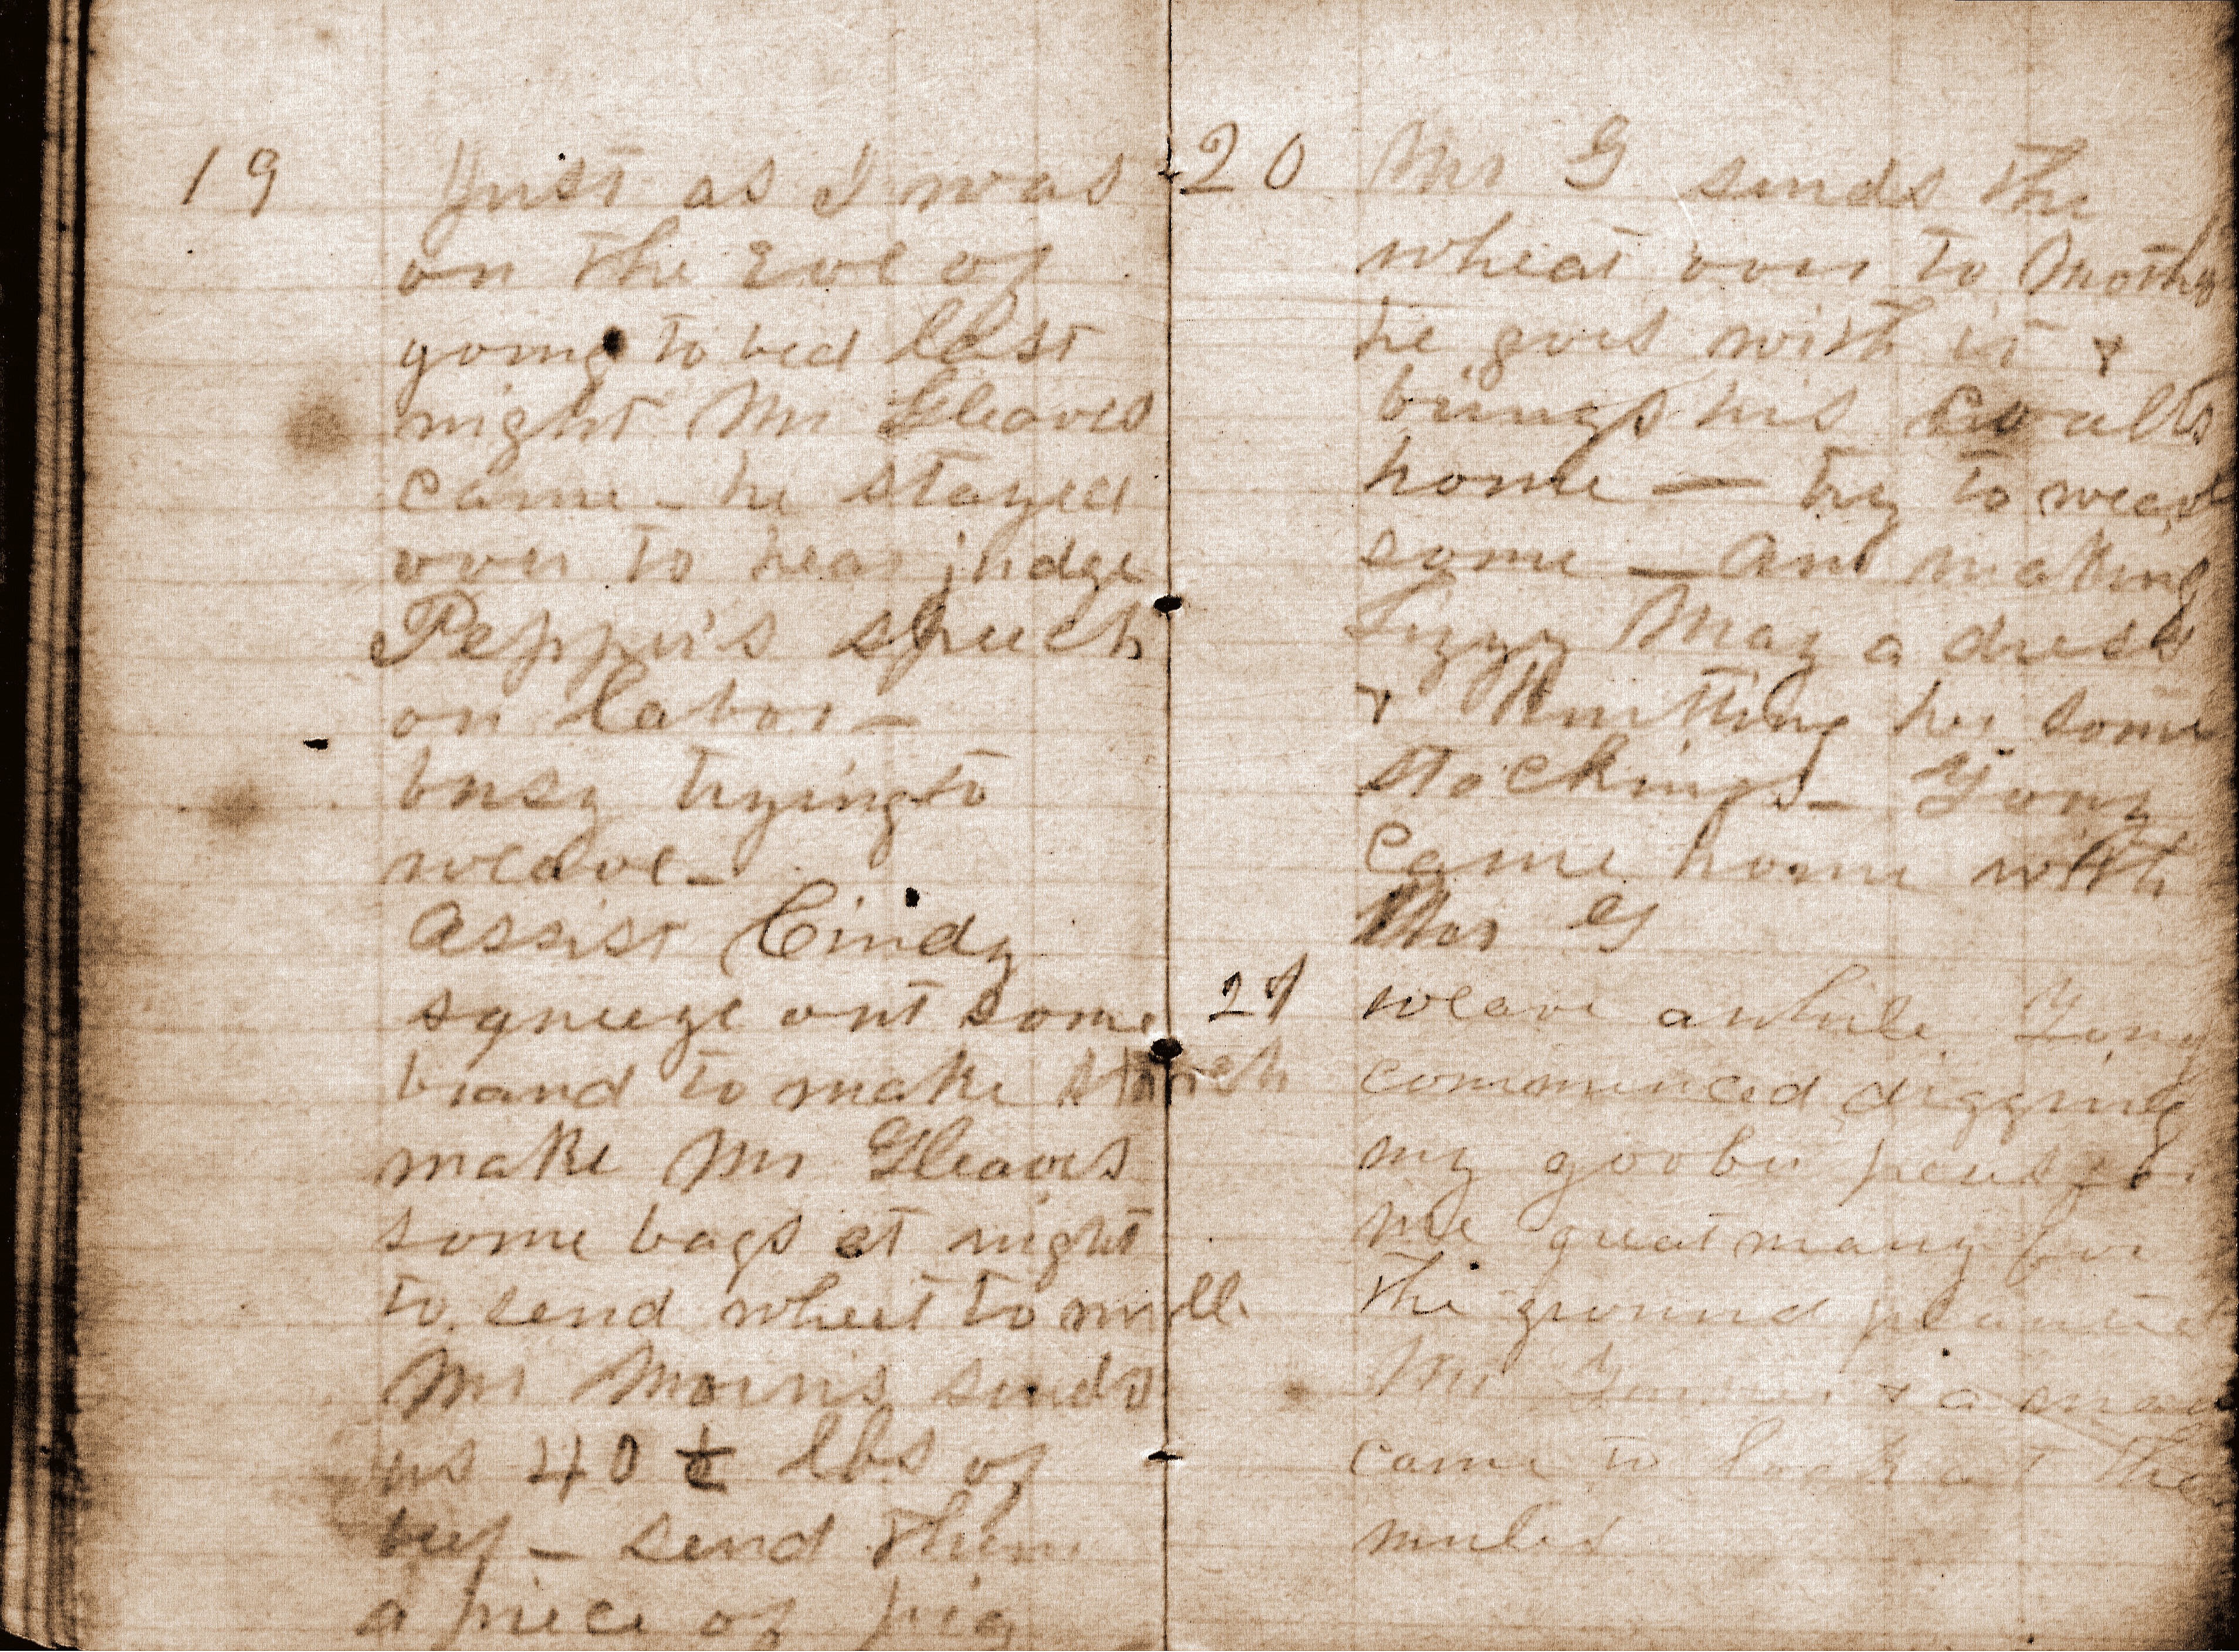 19 Just as I was
on the Eve of
going to bed last
night Mr Gleaves
came - he stayed
over to hear judge
Pepper's speech
on labor -
busy trying to
weave -
Assist Cindy
squeeze out some
brand to make starch
make Mr Gleaves
some bags at night
to send wheet to mill
Mr Morris sends
us 40 lbs of
beef - send them
a piece of pig
20 Mr G sends the
wheat over to Mothe
he goes with it &
brings his coalts
home — try to weave
some — am making
Lizzy May a dress
& Knitting her some
stockings - Tony
came home with
Mr G
21 weave awhile Tony
commenced digging
my goober peas for
me great many for
the ground planted
Mr & a man
came to look at the
mules